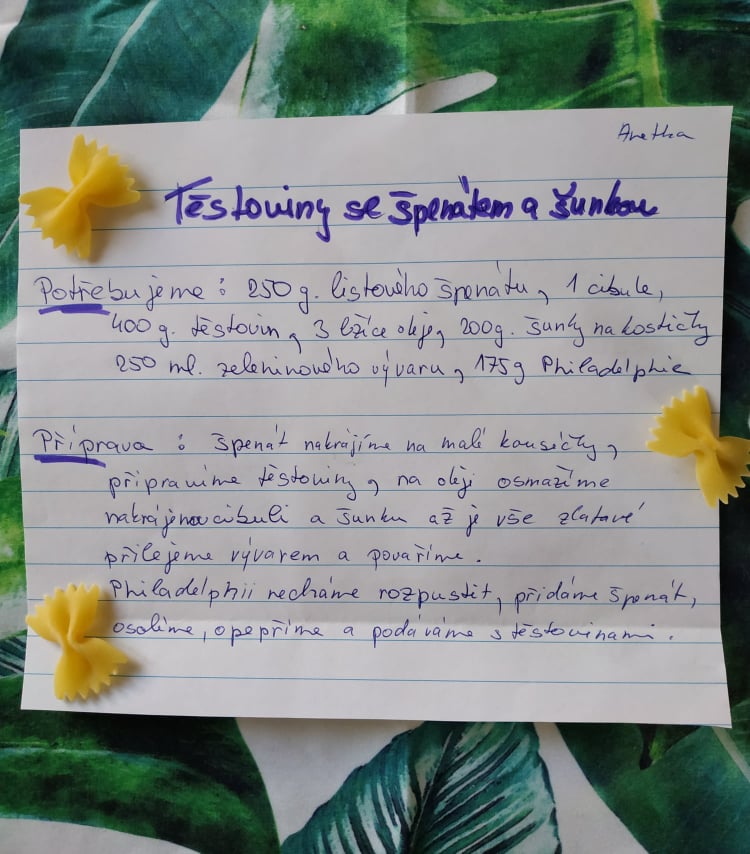 Anetka
Těstoviny se špenátem a šunkou
Potřebujeme : 250 g. listového špenátu, 1 cibule,
400 g. těstovin, 3 lžíce oleje, 200g. šunky na kostičky
250 ml. zeleninového vývaru, 175g Philadelphie
Příprava : špenát nakrájíme na malé kousíčky,
připravíme těstoviny, na oleji osmažíme
nakrájenou cibuli a šunku až je vše zlatavé
přilejeme vývarem a povaříme.
Philadelphii necháme rozpustit, přidáme špenát,
osolíme, opepříme a podáváme s těstovinami.